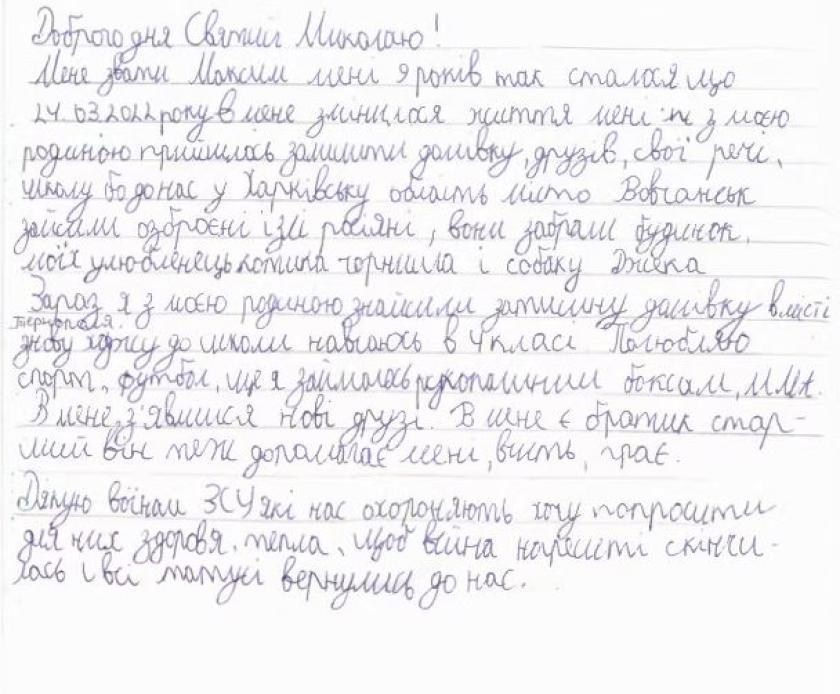 Доброго дня Святий Миколаю!
Мене звати Максим мені 9 років так сталося що
24.03.2022 року в мене змінилося життя мені з моєю
родиною прийшлось залишити домівку, друзів, свої речі,
школу бо до нас у Харківську область місто Вовчанськ
зайшли озброєні і злі росіяни, вони забрали будинок,
моїх улюбленець котика чорниша і собаку Джека
Зараз я з моєю родиною знайшли затишну домівку в місті
Тернополя.
знову ходжу до школи навчаюсь в 4 класі Полюбляю
спорт, футбол, ще я займаюсь рукопашним боксом, ММА.
В мене з'явилися нові друзі. В мене є братик стар-
ший він теж допомагає мені, вчить, грає.
Дякую воїнам ЗСУ які нас охороняють хочу попросити
для них здоровя, тепла, щоб війна нарешті скінчи-
лась і всі татусі вернулись до нас.